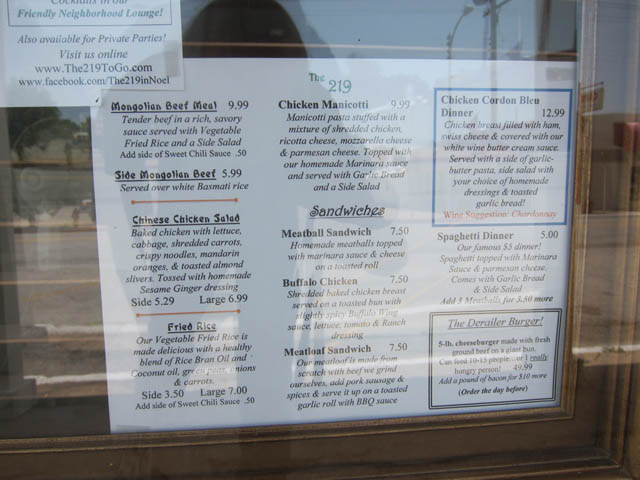 Cocktails in our
Friendly Neighborhood Lounge!
Also available for Private Parties!
Visit us online
www.The219ToGo.com
www.facebook.com/The219inNoel
The
219
Mongolian Beef Meal 9.99
Tender beef in a rich, savory
sauce served with Vegetable
Fried Rice and a Side Salad
Add side of Sweet Chili Sauce .50
Side Mongolian Beef 5.99
Served over white Basmati rice
Chinese Chicken Salad
Baked chicken with lettuce,
cabbage, shredded carrots,
crispy noodles, mandarin
oranges, & toasted almond
slivers. Tossed with homemade
Sesame Ginger dressing
Side 5.29 Large 6.99
Fried Rice
Our Vegetable Fried Rice is
made delicious with a healthy
blend of Rice Bran Oil and
Coconut oil, green peas, onions
& carrots.
Side 3.50 Large 7.00
Add side of Sweet Chili Sauce .50
Chicken Manicotti 9.99
Manicotti pasta stuffed with a
mixture of shredded chicken,
ricotta cheese, mozzarella cheese
& parmesan cheese. Topped with
our homemade Marinara sauce
and served with Garlic Bread
and a Side Salad
Sandwiches
Meatball Sandwich 7.50
Homemade meatballs topped
with marinara sauce & cheese
on a toasted roll
Buffalo Chicken 7.50
Shredded baked chicken breast
served on a toasted bun with
slightly spicy Buffalo Wing
sauce, lettuce, tomato & Ranch
dressing
Meatloaf Sandwich 7.50
Our meatloaf is made from
scratch with beef we grind
ourselves, add pork sausage &
spices & serve it up on a toasted
garlic roll with BBQ sauce
Chicken Cordon Bleu
Dinner 12.99
Chicken breast filled with ham,
swiss cheese & covered with our
white wine butter cream sauce.
Served with a side of garlic-
butter pasta, side salad with
your choice of homemade
dressings & toasted
garlic bread!
Wine Suggestion: Chardonnay
Spaghetti Dinner 5.00
Our famous $5 dinner!
Spaghetti topped with Marinara
Sauce & parmesan cheese.
Comes with Garlic Bread
& Side Salad
Add 3 Meatballs for 3.50 more
The Derailer Burger!
5-lb. cheeseburger made with fresh
ground beef on a giant bun.
Can feed 10-15 people...or 1 really
hungry person! 49.99
Add a pound of bacon for $10 more
(Order the day before)